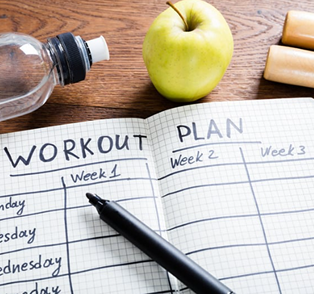 WORKOUT PLAN
Week 1 Week 2 Week 3
nday
esday
ednesday